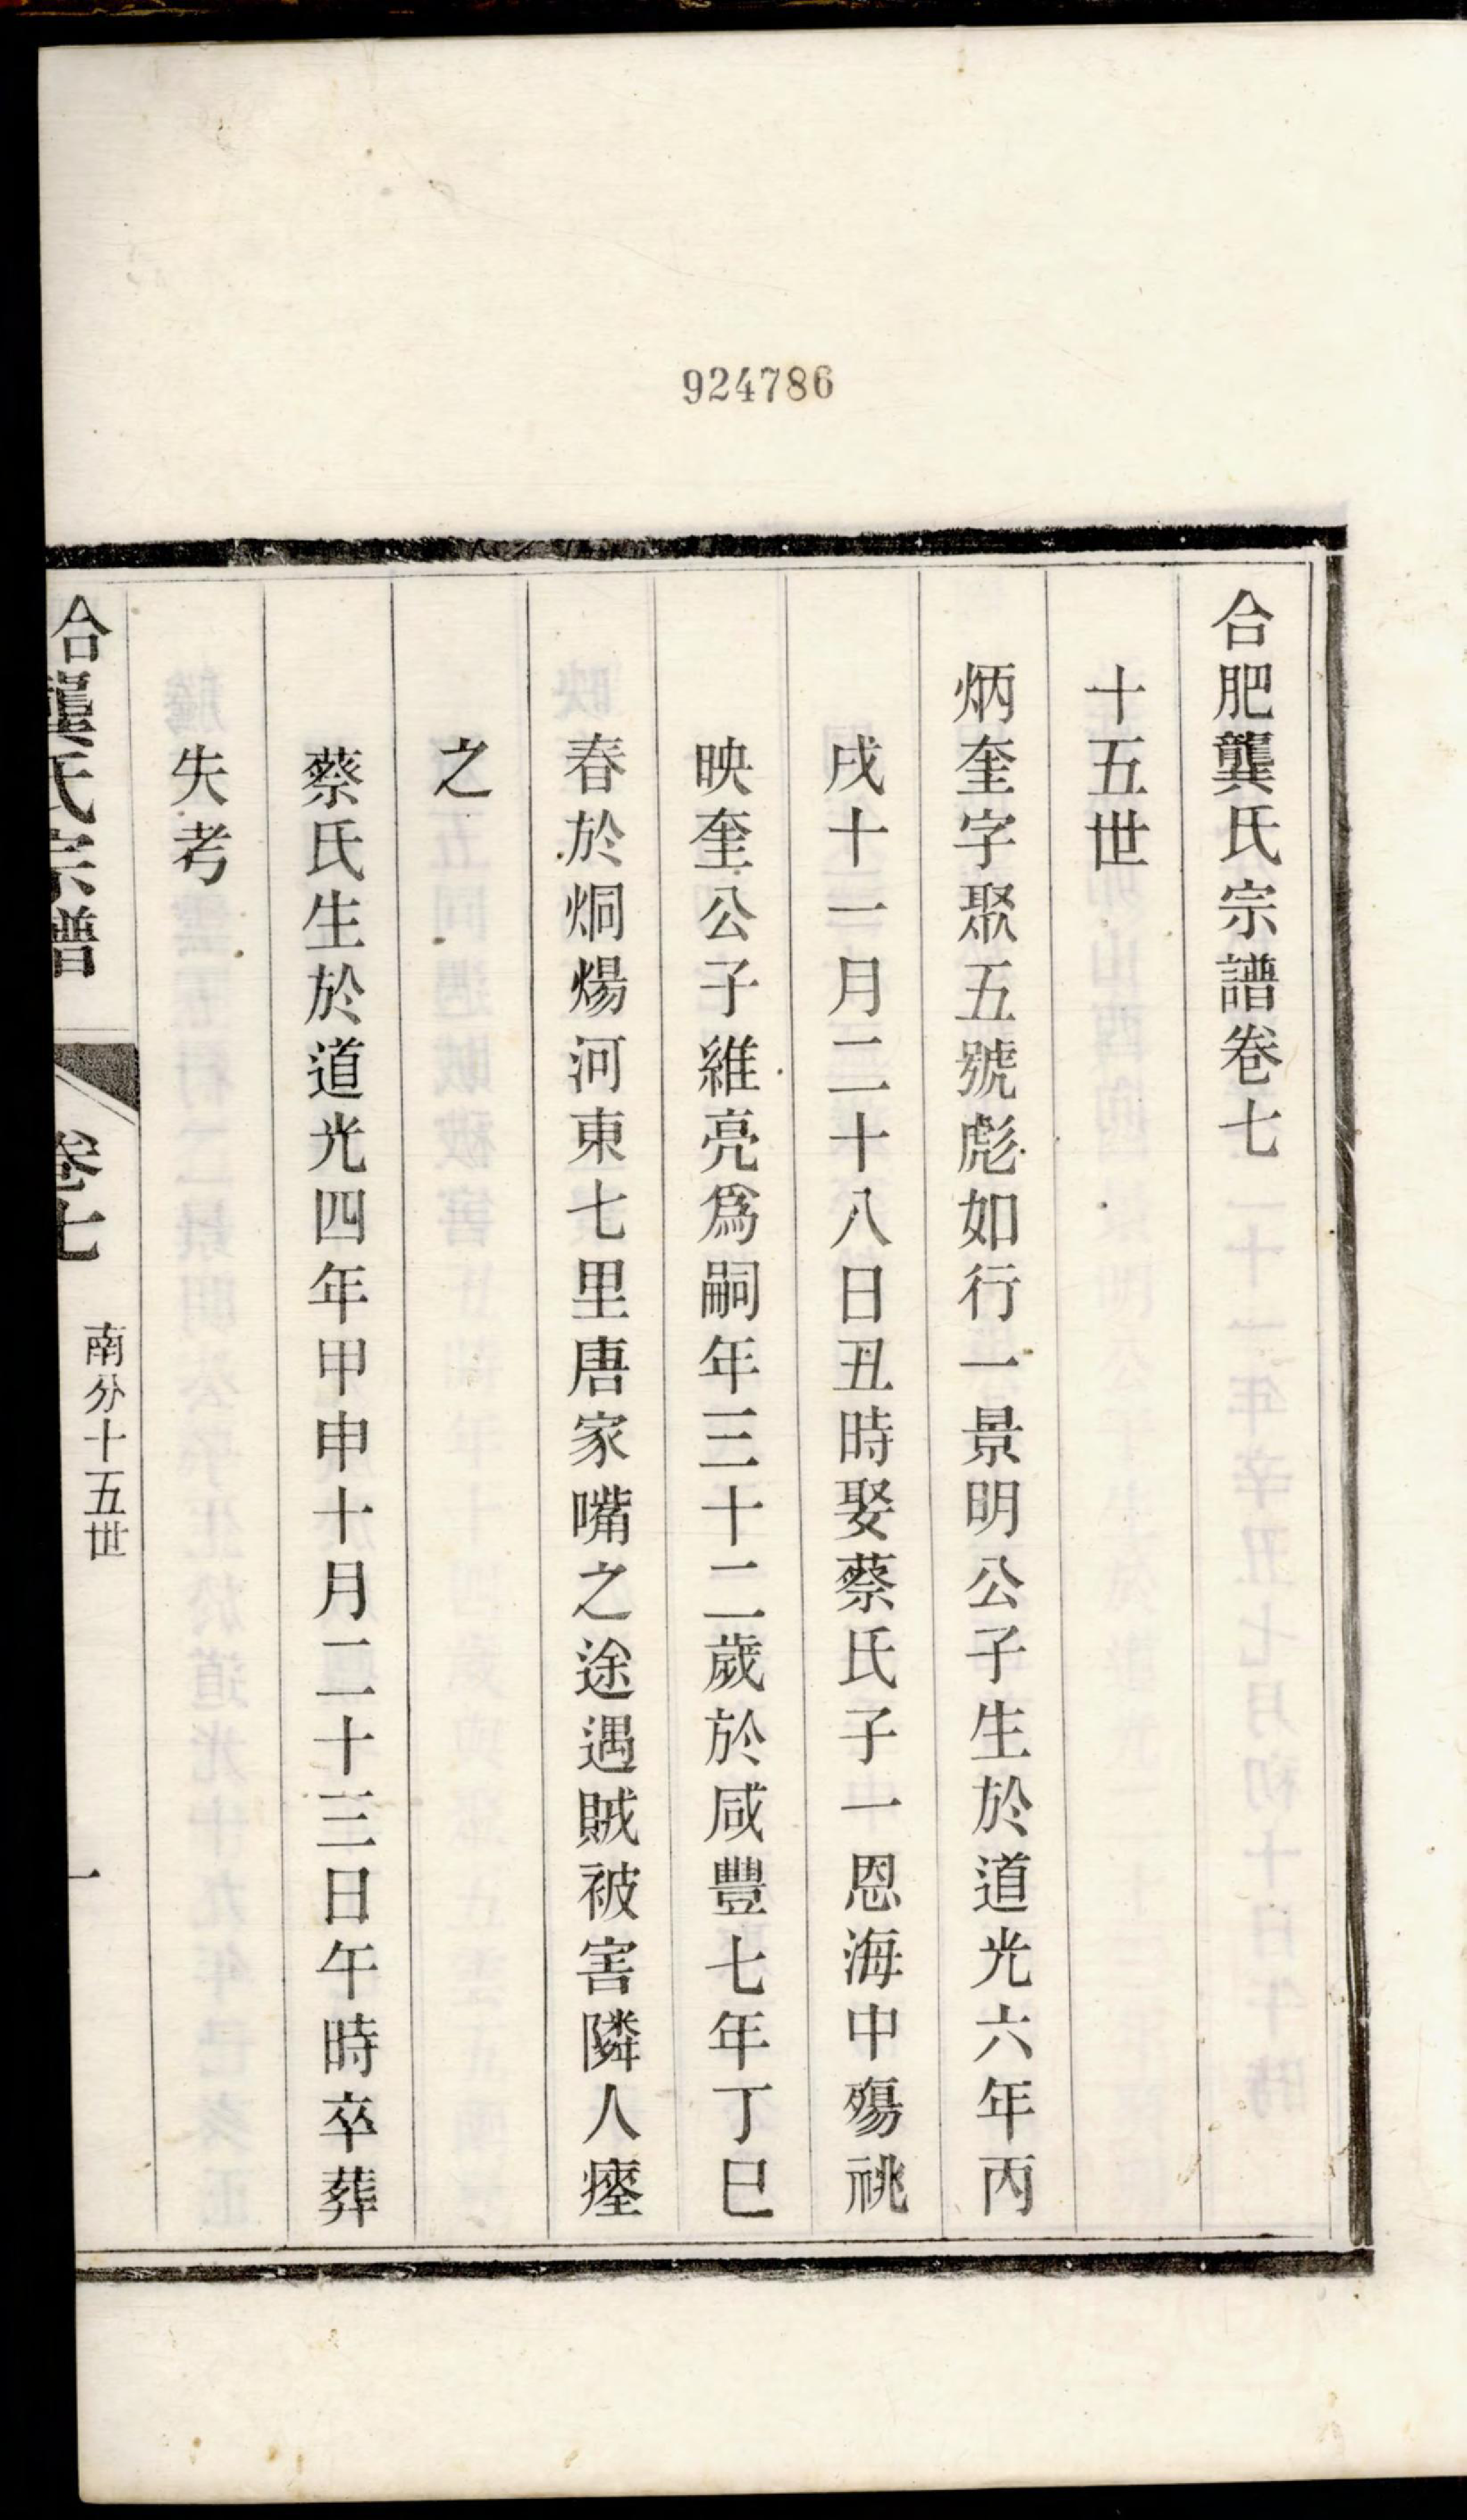 924786
合肥龔氏宗譜卷七
十五世
炳奎字聚五號彪如行一景明公子生於道光六年丙
戌十一月二十八日丑時娶蔡氏子一恩海中殤祧
映奎公子維亮爲嗣年三十二歲於咸豐七年丁巳
春於烔煬河東七里唐家嘴之途遇賊被害隣人瘞
之
蔡氏生於道光四年甲申十月二十三日午時卒葬
失考
合龔氏宗譜
卷七
南分十五世
一